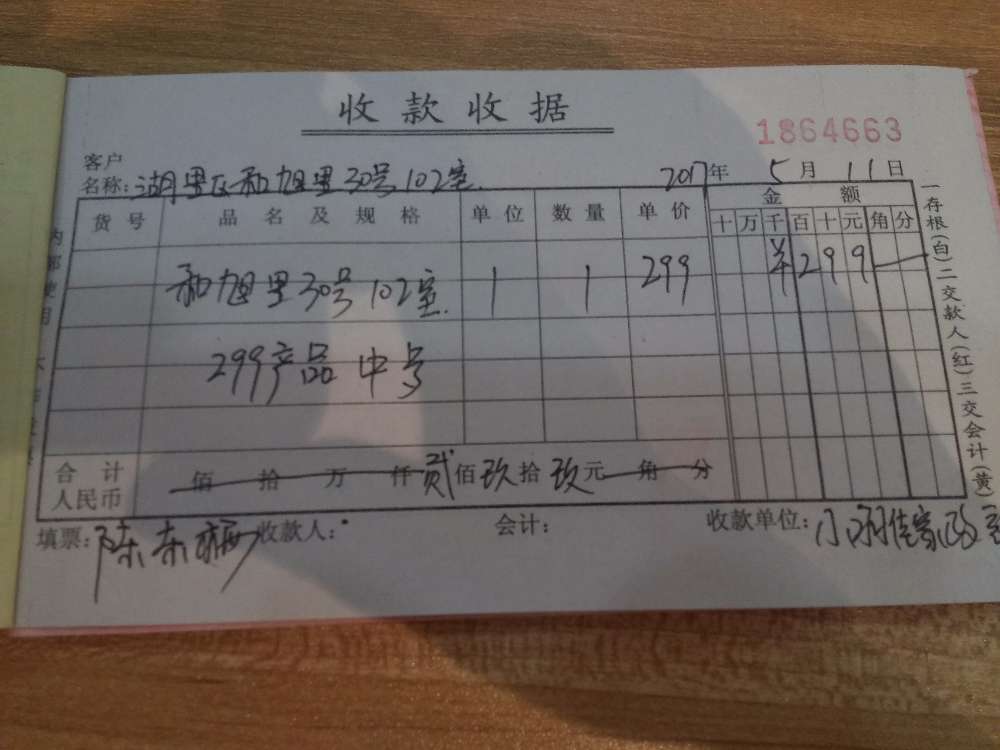 收款收据
1864663
客户
名称: 湖里区和旭里30号102室. 2017年 5月 11日
货号 品名及规格 单位 数量 单价 金额
十 万 千 百 十 元 角 分
和旭里30号102室. 1 1 299 ¥299
299产品 中号
合计 佰 拾 万 仟 贰佰 玖拾 玖元 角 分
人民币
填票: 陈东 收款人: 会计: 收款单位: 小羽佳家政
一存根(白)二交款人(红)三交会计(黄)